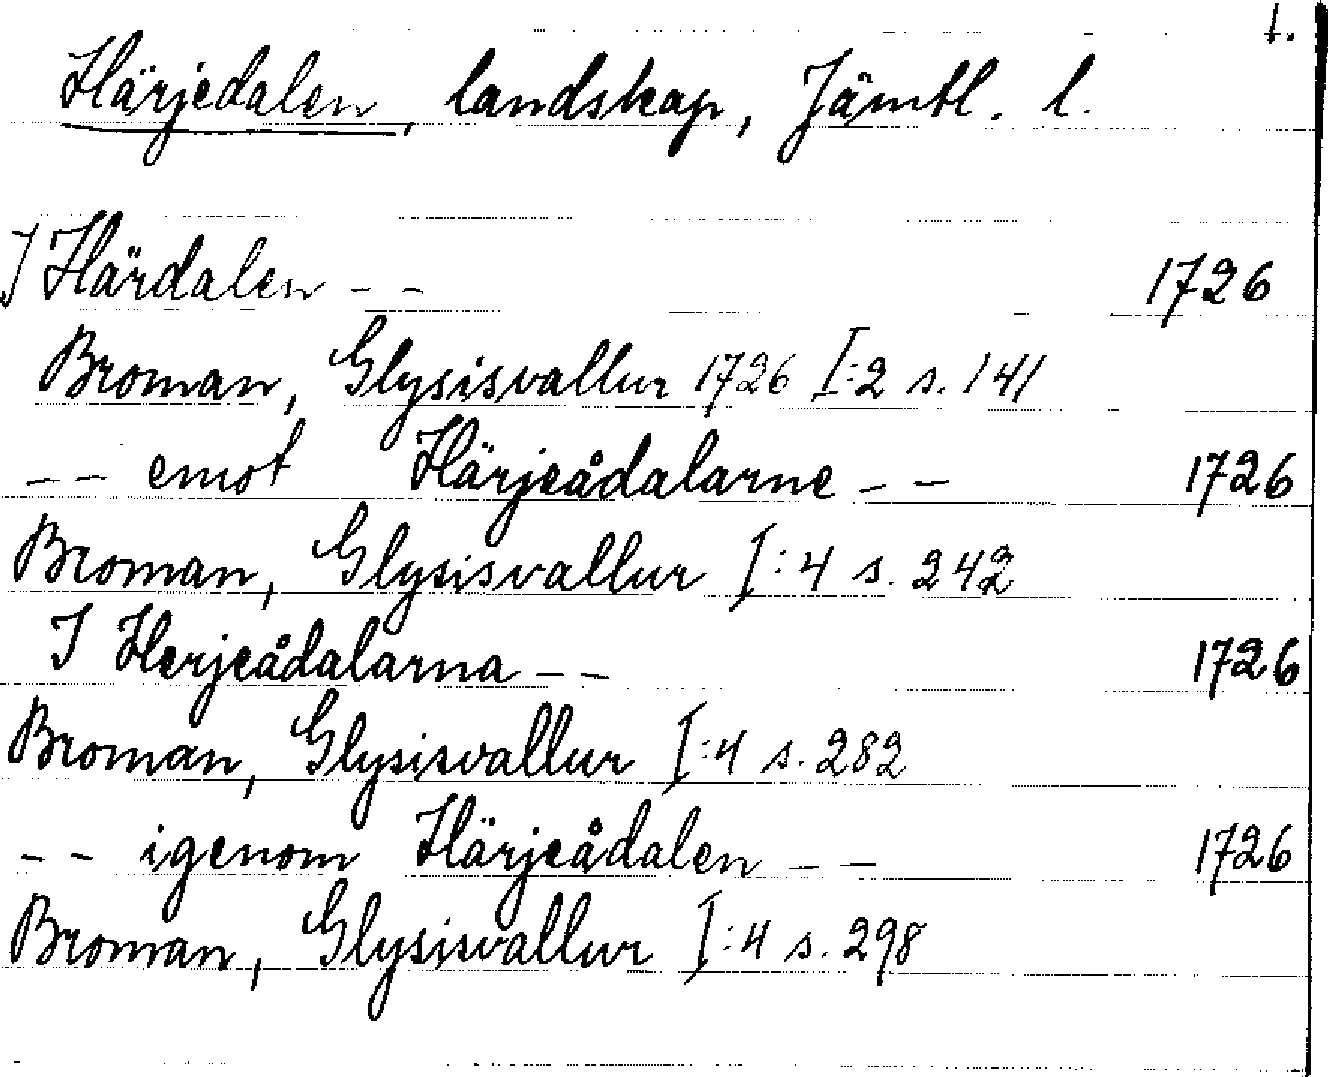 1.
Härjedalen, landskap, Jämtl. l.
I Härdalen - - 1726
Broman, Glysisvallur 1726 I:2 s. 141
- - emot Härjeådalarne - - 1726
Broman, Glysisvallur I:4 s. 242
I Herjeådalarna - - 1726
Broman, Glysisvallur I:4 s. 282
- - igenom Härjeådalen - - 1726
Broman, Glysisvallur I:4 s. 298